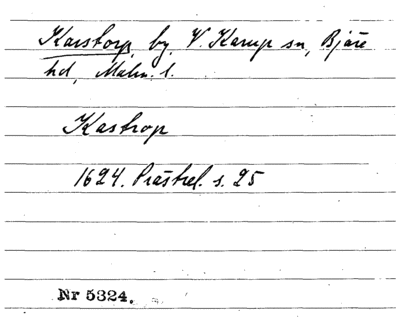 Karstorp, by, V. Karup sn, Bjäre
hd, Malm. l.
Kastrop
1624. Prästrel. s. 25
Nr 5324.